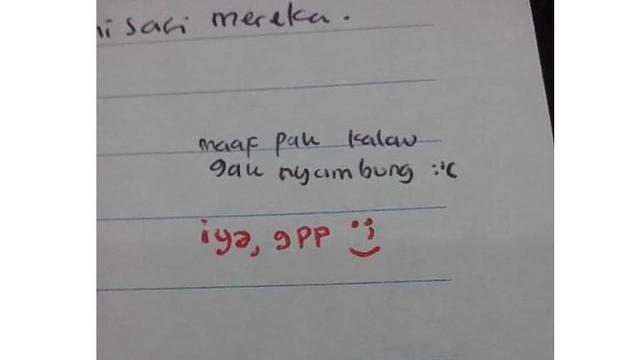 isasi mereka.
maaf pak kalau
gak nyambung :'(
iya, gpp :)